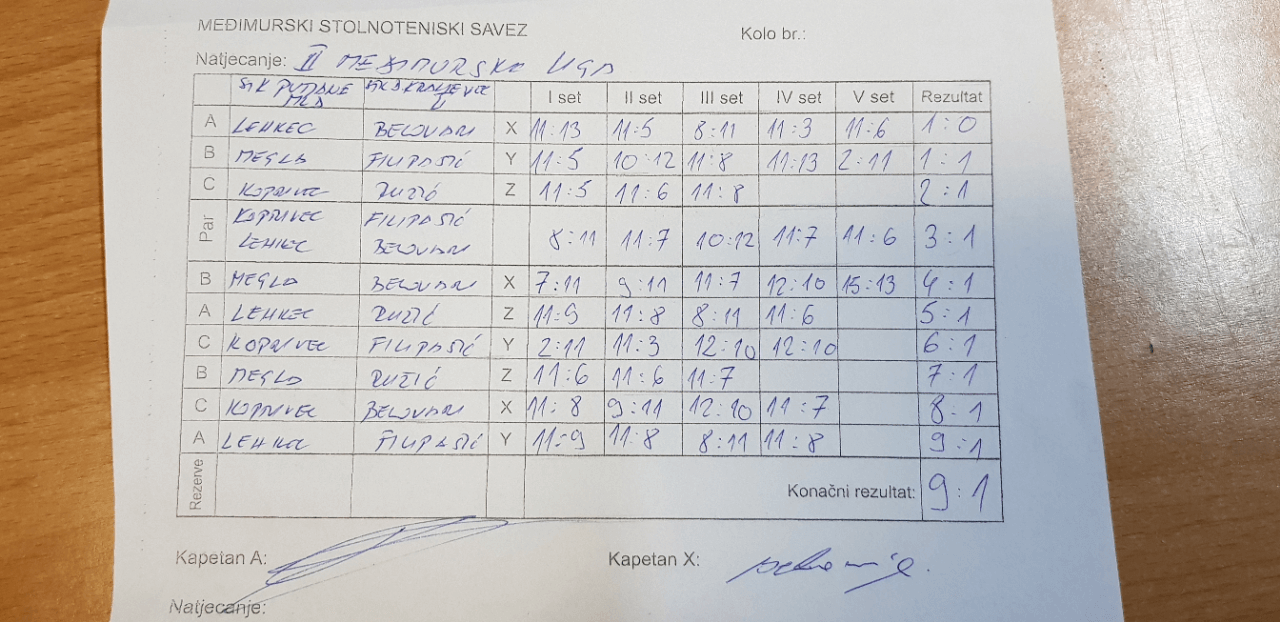 MEĐIMURSKI STOLNOTENISKI SAVEZ
Kolo br.:
Natjecanje: II MEĐIMURSKA LIGA
STK PUŠĆINE MLA STK D.KRALJEVEC I set II set III set IV set V set Rezultat
A LEHKEC BELOVARI X 11:13 11:5 8:11 11:3 11:6 1:0
B MEGLA FILIPAŠIĆ Y 11:5 10:12 11:8 11:13 2:11 1:1
C KOPRIVEC RUŽIĆ Z 11:5 11:6 11:8 2:1
Par KOPRIVEC FILIPAŠIĆ
LEHKEC BELOVARI 8:11 11:7 10:12 11:7 11:6 3:1
B MEGLA BELOVARI X 7:11 9:11 11:7 12:10 15:13 4:1
A LEHKEC RUŽIĆ Z 11:9 11:8 8:11 11:6 5:1
C KOPRIVEC FILIPAŠIĆ Y 2:11 11:3 12:10 12:10 6:1
B MEGLA RUŽIĆ Z 11:6 11:6 11:7 7:1
C KOPRIVEC BELOVARI X 11:8 9:11 12:10 11:7 8:1
A LEHKEC FILIPAŠIĆ Y 11:9 11:8 8:11 11:8 9:1
Rezerve Konačni rezultat: 9:1
Kapetan A: Kapetan X:
Natjecanje: